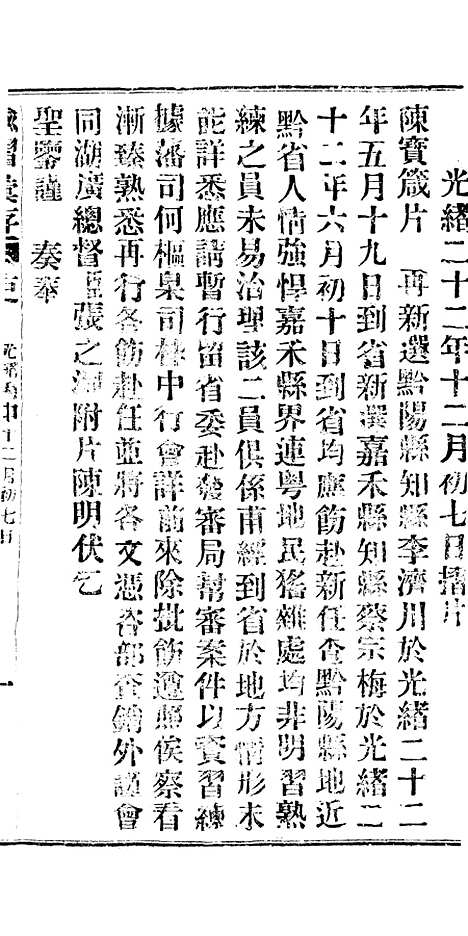 光緒二十二年十二月初七日摺片
陳寶箴片　再新選黔陽縣知縣李濟川於光緒二十二
年五月十九日到省新選嘉禾縣知縣蔡宗梅於光緒二
十二年六月初十日到省均應飭赴新任查黔陽縣地近
黔省人情強悍嘉禾縣界連粵地民猺雜處均非明習熟
練之員未易治理該二員俱係甫經到省於地方情形未
能詳悉應請暫行留省委赴發審局幫審案件以資習練
據藩司何樞臬司　中行會詳前來除批飭遵照俟察看
漸臻熟悉再行各飭赴任並將各文憑咨部查銷外謹會
同湖廣總督臣張之洞附片陳明伏乞
聖鑒謹　奏奉
十二月初七日
一